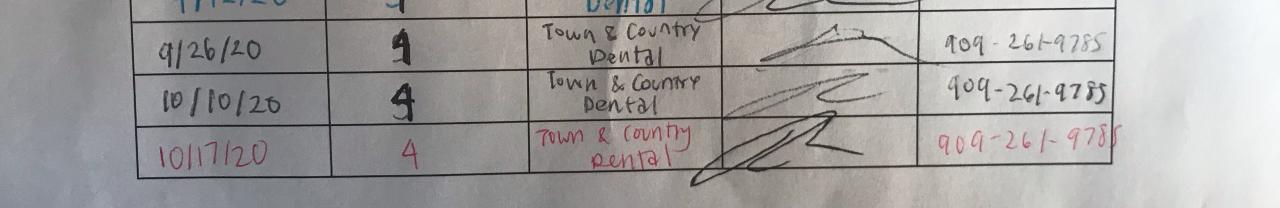 Dental
9/26/20 4 Town & Country
Dental 909-261-9785
10/10/20 4 Town & Country
Dental 909-261-9785
10/17/20 4 Town & Country
Dental 909-261-9785